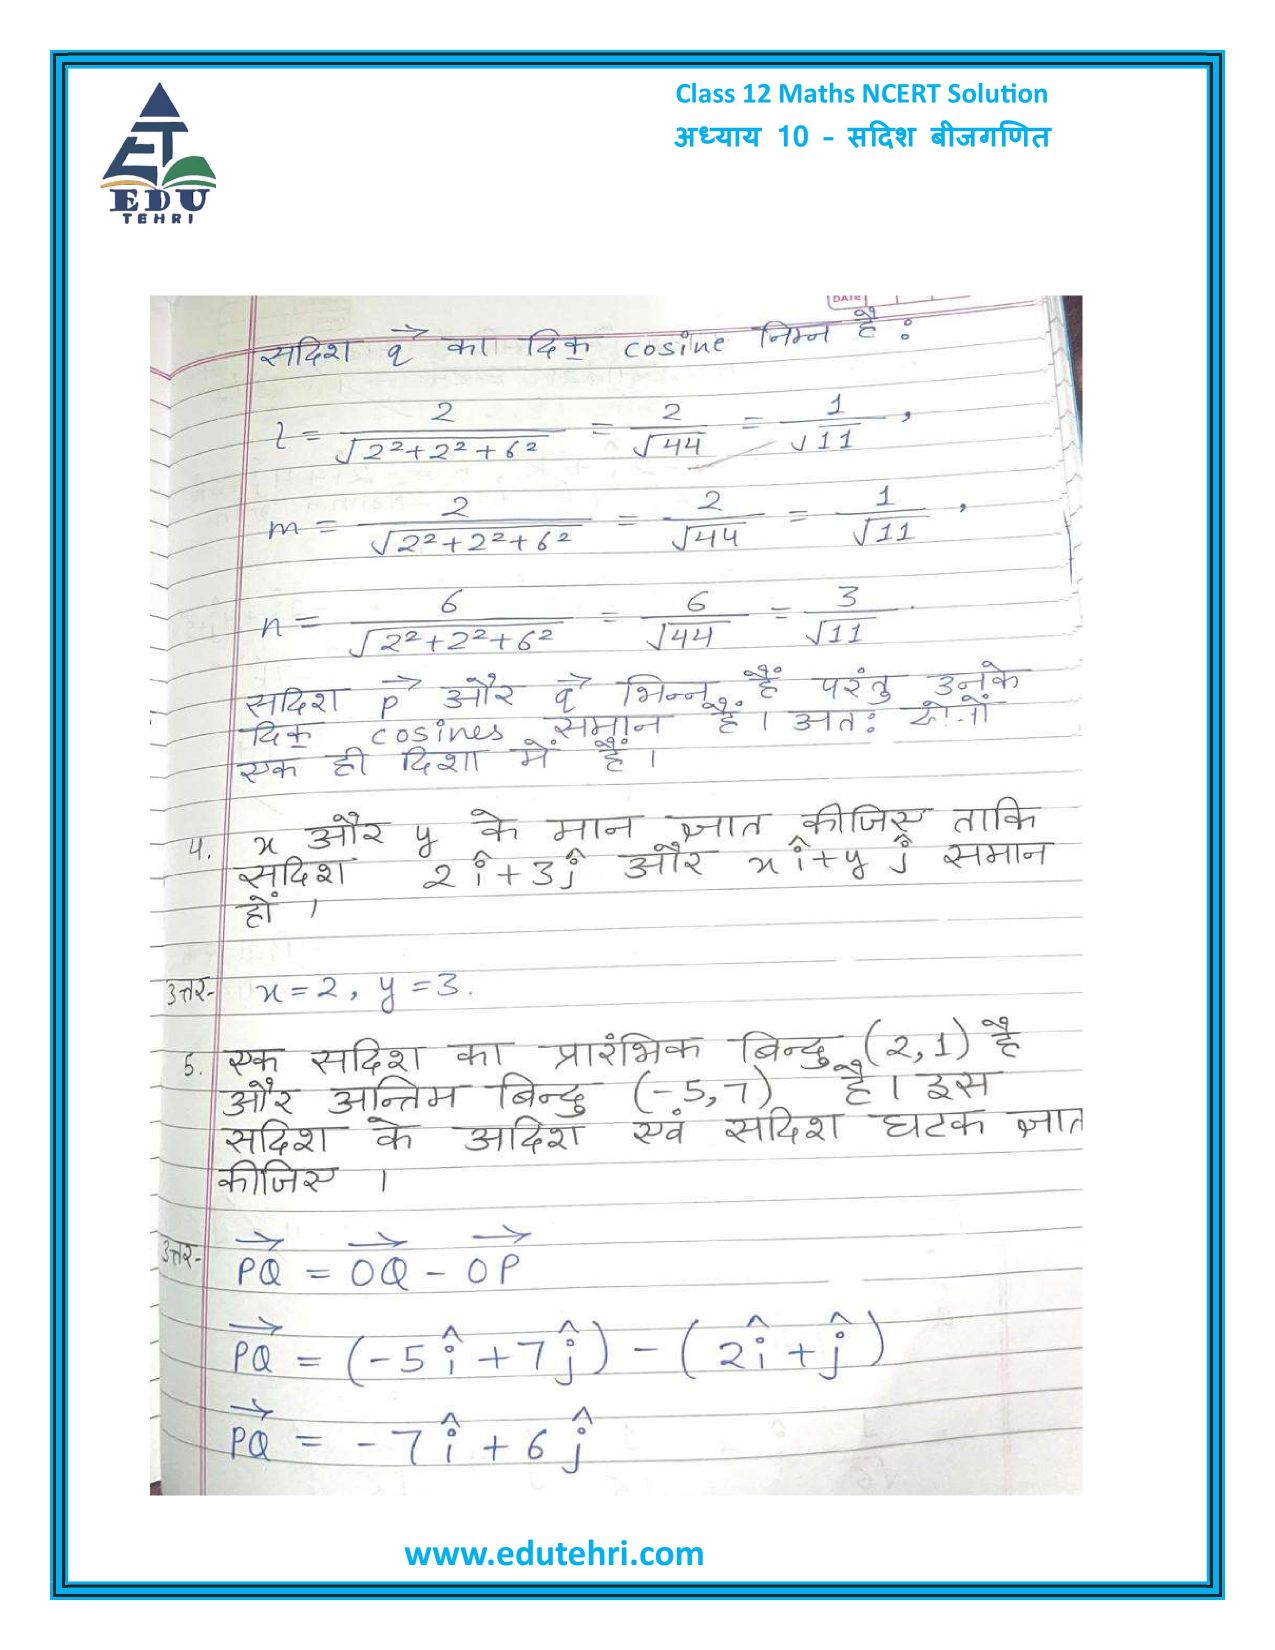 Class 12 Maths NCERT Solution
अध्याय 10 - सदिश बीजगणित
EDU
TEHRI
DATE
सदिश q⃗ का दिक् cosine निम्न है :
l = 2/√(2²+2²+6²) = 2/√44 = 1/√11 ,
m = 2/√(2²+2²+6²) = 2/√44 = 1/√11 ,
n = 6/√(2²+2²+6²) = 6/√44 = 3/√11 .
सदिश p⃗ और q⃗ भिन्न हैं परंतु उनके
दिक् cosines समान हैं। अतः दोनों
एक ही दिशा में हैं।
4. x और y के मान ज्ञात कीजिए ताकि
सदिश 2î+3ĵ और xî+yĵ समान
हों ।
उत्तर- x=2, y=3.
5. एक सदिश का प्रारंभिक बिन्दु (2,1) है
और अन्तिम बिन्दु (-5,7) है। इस
सदिश के अदिश एवं सदिश घटक ज्ञात
कीजिए ।
उत्तर- PQ⃗ = OQ⃗ - OP⃗
PQ⃗ = (-5î+7ĵ) - (2î+ĵ)
PQ⃗ = -7î + 6ĵ
www.edutehri.com